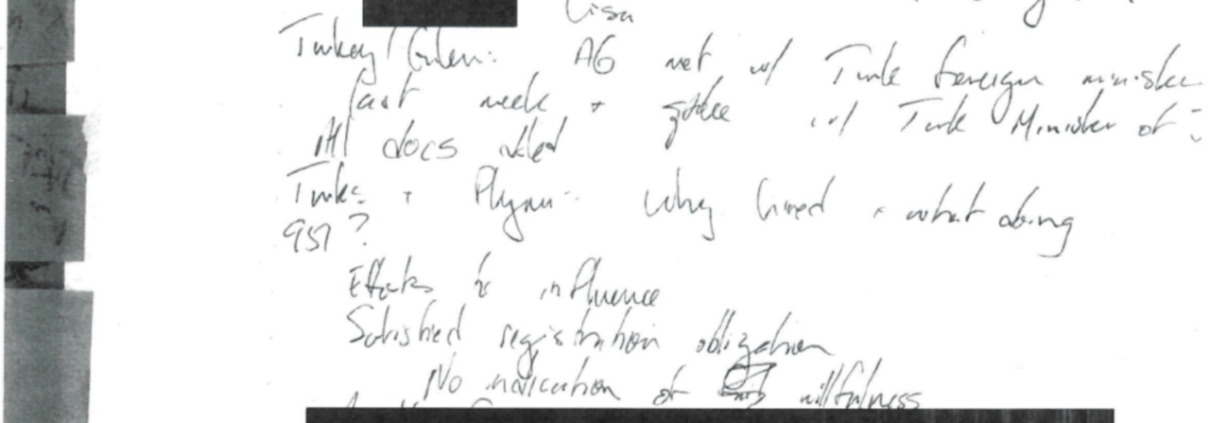 Lisa
Turkey/Gulen: AG met w/ Turk foreign minister
last week + spoke w/ Turk Minister of
docs
Turks + Flynn: Why hired + what doing
951?
Efforts to influence
Satisfied registration obligation
No indication of willfulness